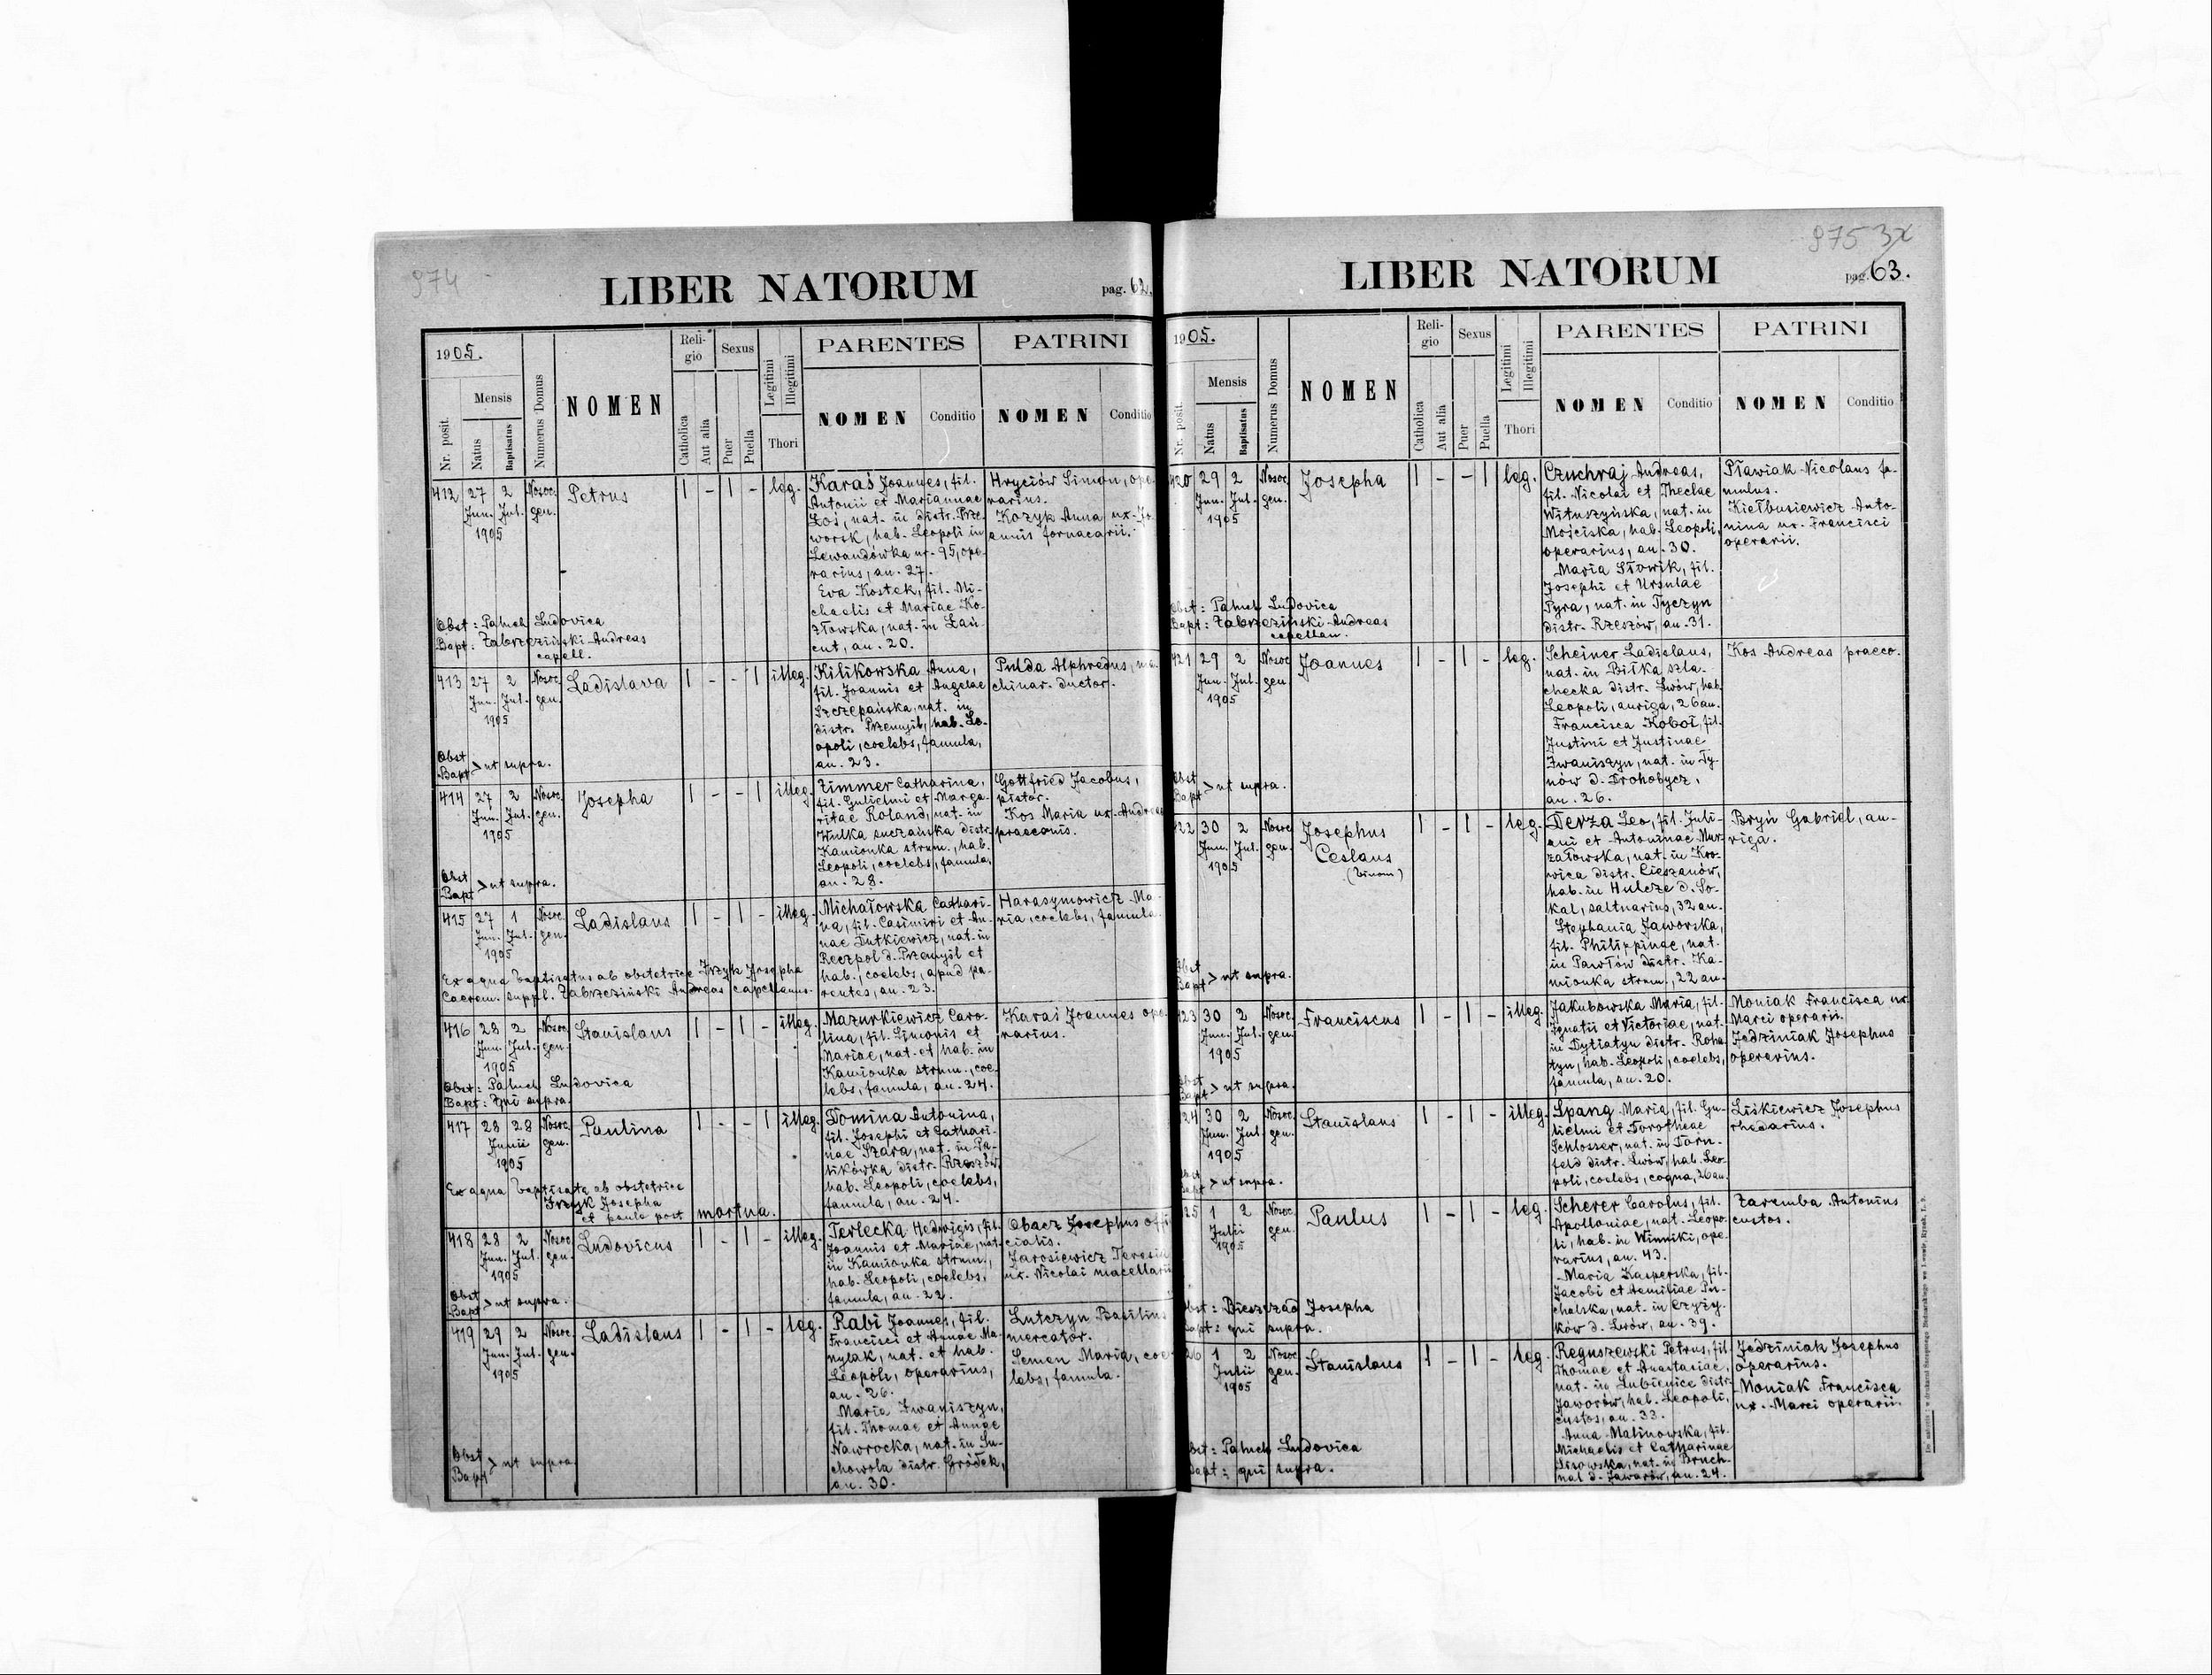 974
LIBER NATORUM
pag. 62.
1905.
Nr. posit.
Mensis
Natus
Baptisatus
Numerus Domus
NOMEN
Reli-
gio
Catholica
Aut alia
Sexus
Puer
Puella
Legitimi
Illegitimi
Thori
PARENTES
NOMEN
Conditio
PATRINI
NOMEN
Conditio
412 27 2 Nosoc. Petrus | - | - leg.
Jun. Jul. gen.
1905
Karaś Joannes, fil.
Antonii et Mariannae
Łoś, nat. in distr. Prze-
worsk, hab. Leopoli in
Lewandówka nr. 95, ope-
rarius, an. 27.
Eva Kostek, fil. Mi-
chaelis et Mariae Ko-
złowska, nat. in Łań-
cut, an. 20.
Hryciów Simon, ope-
rarius.
Kozyk Anna ux. Jo-
annis fornacarii.
Obst: Paluch Ludovica
Bapt: Zabrzeziński Andreas
capell.
413 27 2 Nosoc. Ladislava | - - | illeg.
Jun. Jul. gen.
1905
Kilikowska Anna,
fil. Joannis et Angelae
Szczepańska, nat. in
distr. Przemyśl, hab. Le-
opoli, coelebs, famula,
an. 23.
Pulda Alphredus, ma-
chinar. ductor.
Obst
Bapt > ut supra.
414 27 2 Nosoc. Josepha | - - | illeg.
Jun. Jul. gen.
1905
Zimmer Catharina,
fil. Gulielmi et Marga-
ritae Roland, nat. in
Hulka suczańska distr.
Kamionka strum., hab.
Leopoli, coelebs, famula,
an. 28.
Gottfried Jacobus,
pistor.
Kos Maria ux. Andreae
praeconis.
Obst
Bapt > ut supra.
415 27 1 Nosoc. Ladislaus | - | - illeg.
Jun. Jul. gen.
1905
Michałowska Cathari-
na, fil. Casimiri et An-
nae Dutkiewicz, nat. in
Reczpol d. Przemyśl et
hab., coelebs, apud pa-
rentes, an. 23.
Harasymowicz Ma-
ria, coelebs, famula.
Ex aqua baptisatus ab obstetrice Irzyk Josepha
Caerem. suppl. Zabrzeziński Andreas capellanus.
416 28 2 Nosoc. Stanislaus | - | - illeg.
Jun. Jul. gen.
1905
Mazurkiewicz Caro-
lina, fil. Simonis et
Mariae, nat. et hab. in
Kamionka strum., coe-
lebs, famula, an. 24.
Karaś Joannes ope-
rarius.
Obst: Paluch Ludovica
Bapt: qui supra.
417 28 28 Nosoc. Paulina | - - | illeg.
Junii gen.
1905
Domina Antonina,
fil. Josephi et Cathari-
nae Szara, nat. in Pa-
likówka distr. Rzeszów,
hab. Leopoli, coelebs,
famula, an. 24.
Ex aqua baptisata ab obstetrice
Irzyk Josepha
et paulo post mortua.
418 28 2 Nosoc. Ludovicus | - | - illeg.
Jun. Jul. gen.
1905
Terlecka Hedwigis, fil.
Joannis et Mariae, nat.
in Kamionka strum.,
hab. Leopoli, coelebs,
famula, an. 22.
Obacz Josephus offi-
cialis.
Jarosiewicz Teresia
ux. Nicolai macellarii
Obst
Bapt > ut supra.
419 29 2 Nosoc. Ladislaus | - | - leg.
Jun. Jul. gen.
1905
Rabi Joannes, fil.
Francisci et Annae Ma-
nylak, nat. et hab.
Leopoli, operarius,
an. 26.
Maria Iwaniszyn,
fil. Thomae et Annae
Nawrocka, nat. in Su-
chowola distr. Gródek,
an. 30.
Lutczyn Basilius
mercator.
Semen Maria, coe-
lebs, famula.
Obst
Bapt > ut supra
975
LIBER NATORUM
pag. 63.
1905.
Nr. posit.
Mensis
Natus
Baptisatus
Numerus Domus
NOMEN
Reli-
gio
Catholica
Aut alia
Sexus
Puer
Puella
Legitimi
Illegitimi
Thori
PARENTES
NOMEN
Conditio
PATRINI
NOMEN
Conditio
420 29 2 Nosoc. Josepha | - - | leg.
Jun. Jul. gen.
1905
Czuchraj Andreas,
fil. Nicolai et Theclae
Wituszyńska, nat. in
Mościska, hab. Leopoli,
operarius, an. 30.
Maria Słowik, fil.
Josephi et Ursulae
Pyra, nat. in Tyczyn
distr. Rzeszów, an. 31.
Pławiak Nicolaus fa-
mulus.
Kiełbusiewicz Anto-
nina ux. Francisci
operarii.
Obst: Paluch Ludovica
Bapt: Zabrzeziński Andreas
capellan.
421 29 2 Nosoc. Joannes | - | - leg.
Jun. Jul. gen.
1905
Scheiner Ladislaus,
nat. in Biłka szla-
checka distr. Lwów, hab.
Leopoli, auriga, 26 an.
Francisca Koboł, fil.
Justini et Justinae
Iwaniszyn, nat. in Ty-
nów d. Drohobycz,
an. 26.
Kos Andreas praeco.
Obst
Bapt > ut supra.
422 30 2 Nosoc. Josephus | - | - leg.
Jun. Jul. gen. Ceslaus
1905 (binom)
Derza Leo, fil. Juli-
ani et Antoninae Mar-
załowska, nat. in Kro-
wica distr. Cieszanów,
hab. in Hulcze d. So-
kal, saltuarius, 32 an.
Stephania Jaworska,
fil. Philippinae, nat.
in Pawłów distr. Ka-
mionka strum., 22 an.
Bryń Gabriel, au-
riga.
Obst
Bapt > ut supra.
423 30 2 Nosoc. Franciscus | - | - illeg.
Jun. Jul. gen.
1905
Jakubowska Maria, fil.
Ignatii et Victoriae, nat.
in Dytiatyn distr. Roha-
tyn, hab. Leopoli, coelebs,
famula, an. 20.
Moniak Francisca ux.
Marci operarii.
Jedziniak Josephus
operarius.
Obst
Bapt > ut supra.
424 30 2 Nosoc. Stanislaus | - | - illeg.
Jun. Jul. gen.
1905
Spang Maria, fil. Gu-
lielmi et Dorotheae
Schlosser, nat. in Dorn-
feld distr. Lwów, hab. Leo-
poli, coelebs, coqua, 26 an.
Liśkiewicz Josephus
rhedarius.
Obst
Bapt > ut supra.
425 1 2 Nosoc. Paulus | - | - leg.
Julii gen.
1905
Scherer Carolus, fil.
Apolloniae, nat. Leopo-
li, hab. in Winniki, ope-
rarius, an. 43.
Maria Kasperska, fil.
Jacobi et Aemiliae Pu-
chalska, nat. in Czyży-
ków d. Lwów, an. 39.
Zaremba Antonius
custos.
Obst: Bieszczad Josepha
Bapt: qui supra.
426 1 2 Nosoc. Stanislaus | - | - leg.
Julii gen.
1905
Reguszewski Petrus, fil.
Thomae et Anastasiae,
nat. in Lubienice distr.
Jaworów, hab. Leopoli,
custos, an. 33.
Anna Malinowska, fil.
Michaelis et Catharinae
Lisowska, nat. in Bruch-
nal d. Jaworów, an. 24.
Jedziniak Josephus
operarius.
Moniak Francisca
ux. Marci operarii.
Obst: Paluch Ludovica
Bapt: qui supra.